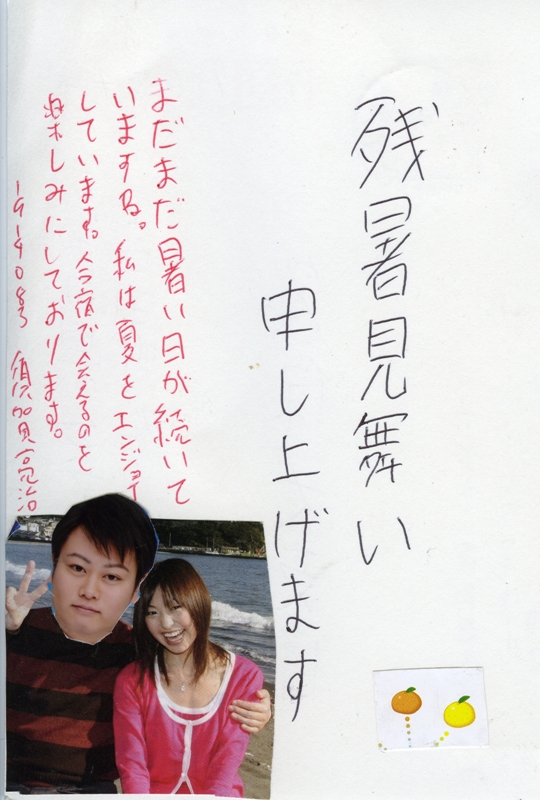 残暑見舞い
申し上げます
まだまだ暑い日が続いて
いまする。私は夏をエンジョイ
しています。今宿で会えるのを
楽しみにしております。
須賀亮治